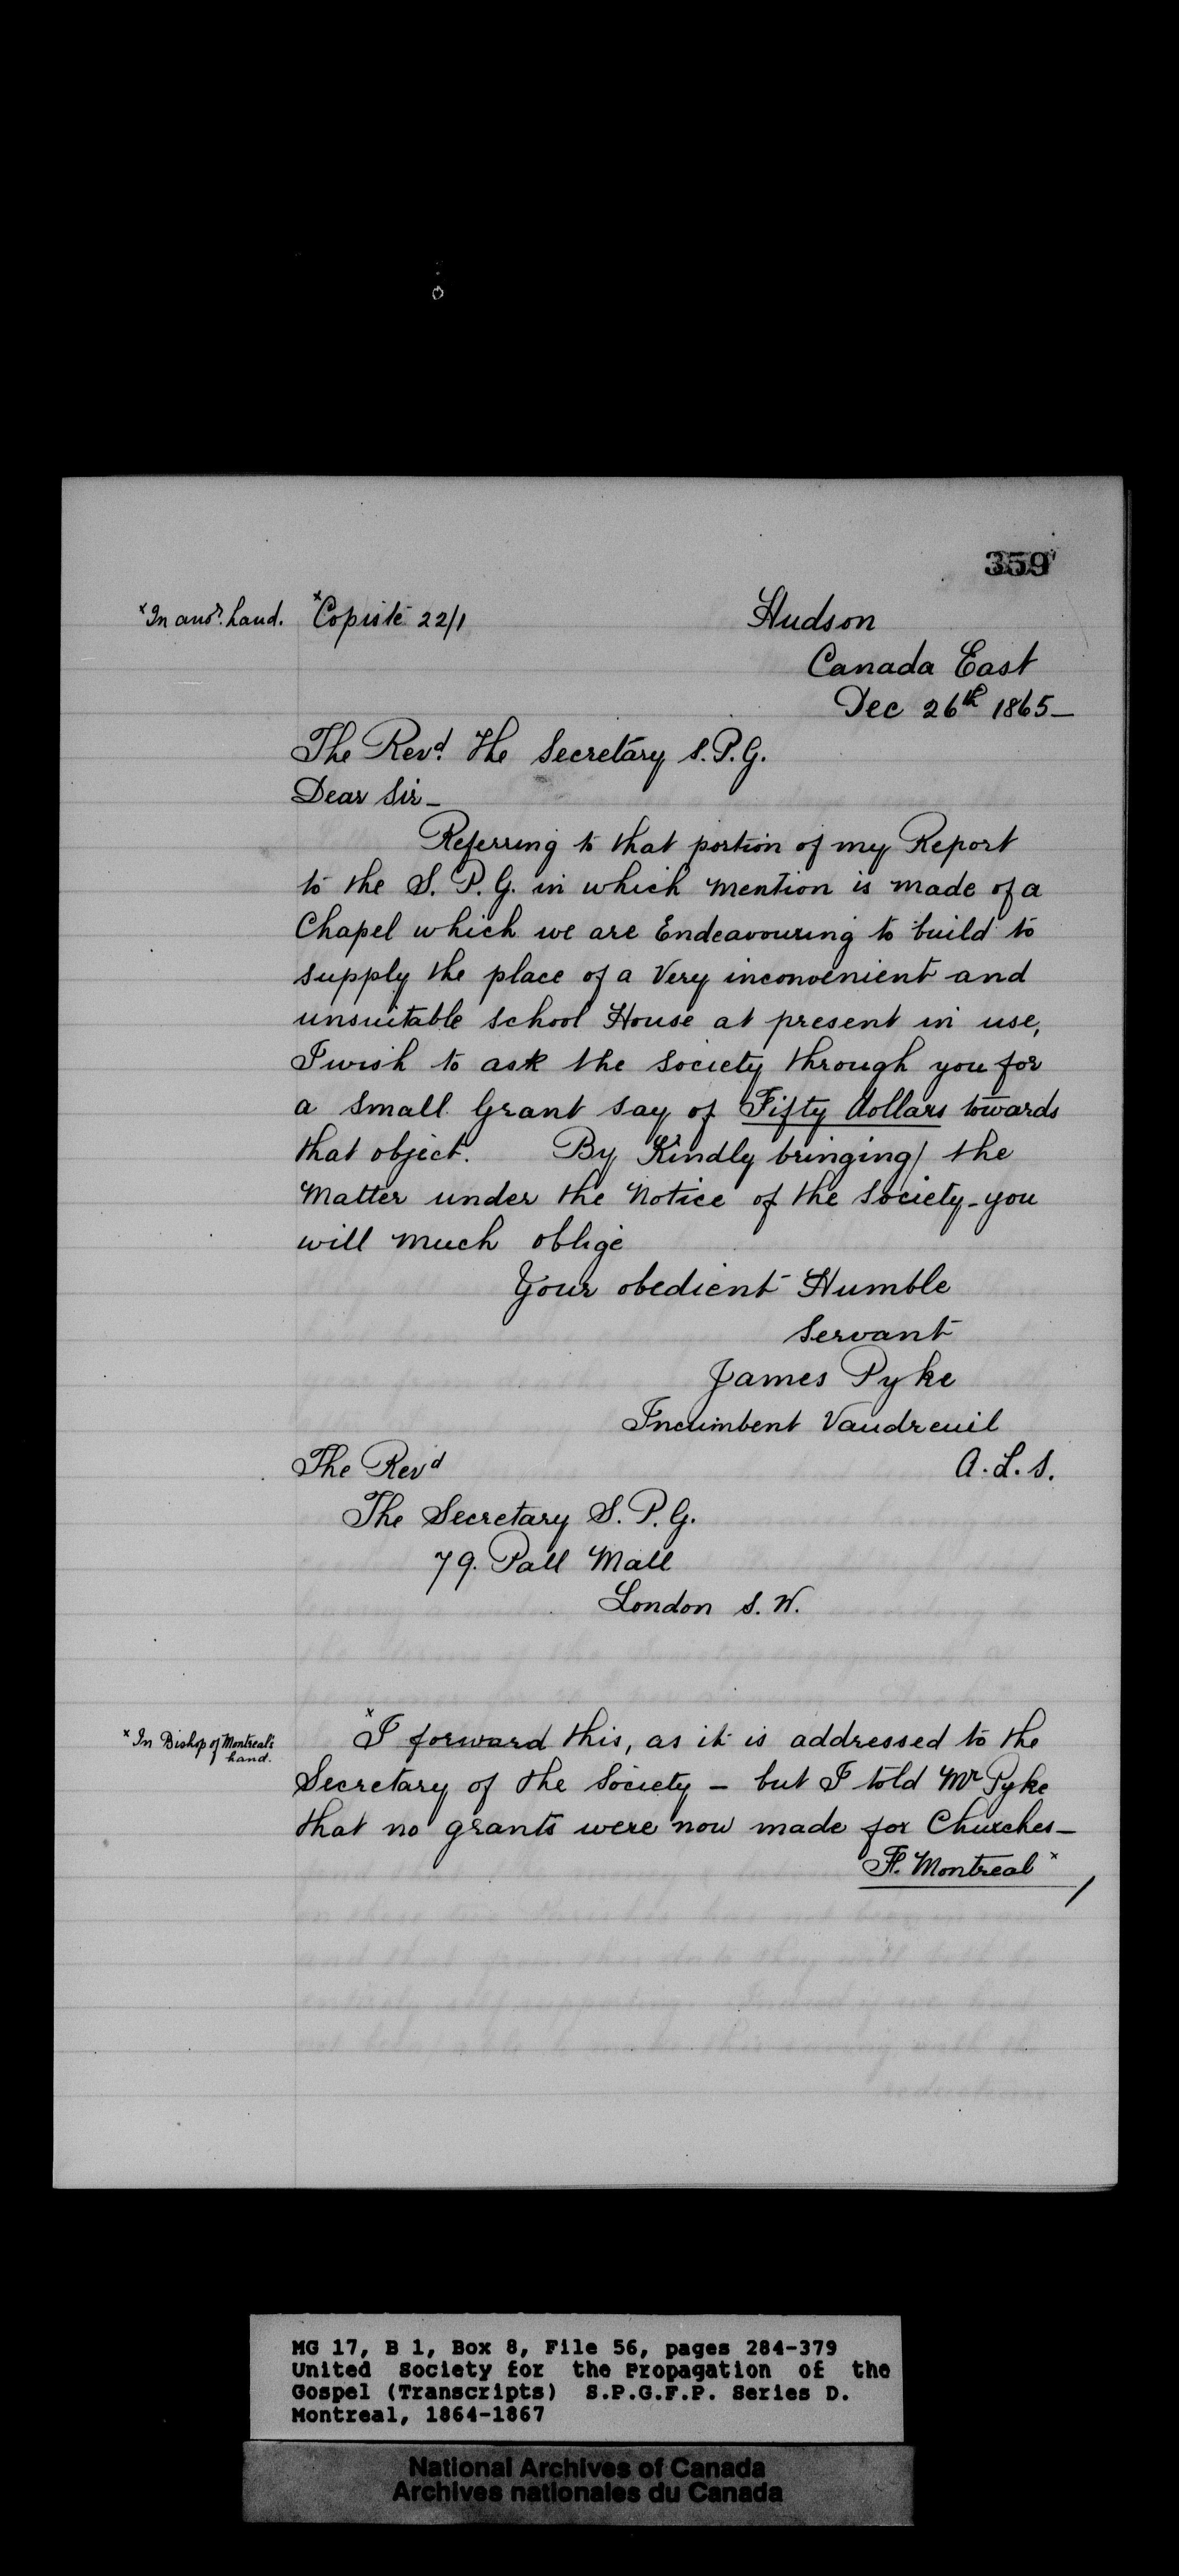 359
*In anor. hand. *Copiste 22/1
Hudson
Canada East
Dec 26th 1865_
The Revd. The Secretary S.P.G.
Dear Sir_
Referring to that portion of my Report
to the S. P. G. in which mention is made of a
Chapel which we are Endeavouring to build to
supply the place of a Very inconvenient and
unsuitable School House at present in use,
I wish to ask the Society through you for
a small Grant say of Fifty dollars towards
that object. By Kindly bringing the
Matter under the Notice of the Society_ you
will much oblige
Your obedient Humble
Servant
James Pyke
Incumbent Vaudreuil
The Revd A. L. S.
The Secretary S. P. G.
79. Pall Mall
London S. W.
* In Bishop of Montreal's
hand.
*I forward this, as it is addressed to the
Secretary of the Society – but I told Mr Pyke
that no grants were now made for Churches_
F. Montreal *
MG 17, B 1, Box 8, File 56, pages 284-379
United Society for the Propagation of the
Gospel (Transcripts) S.P.G.F.P. Series D.
Montreal, 1864-1867
National Archives of Canada
Archives nationales du Canada